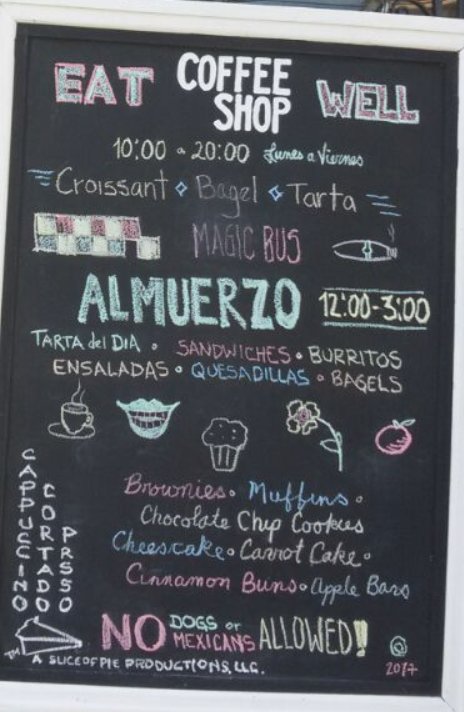 EAT COFFEE SHOP WELL
10:00 a 20:00 Lunes a Viernes
Croissant Bagel Tarta
MAGIC BUS
ALMUERZO 12:00-3:00
TARTA del DIA • SANDWICHES • BURRITOS
ENSALADAS • QUESADILLAS • BAGELS
Brownies • Muffins •
Chocolate Chip Cookies
Cheescake • Carrot Cake •
Cinnamon Buns • Apple Bars
CAPPUCCINO
CORTADO
PRSSO
NO DOGS or MEXICANS ALLOWED!!
TM A SLICE OF PIE PRODUCTIONS, LLC.
@ 2017